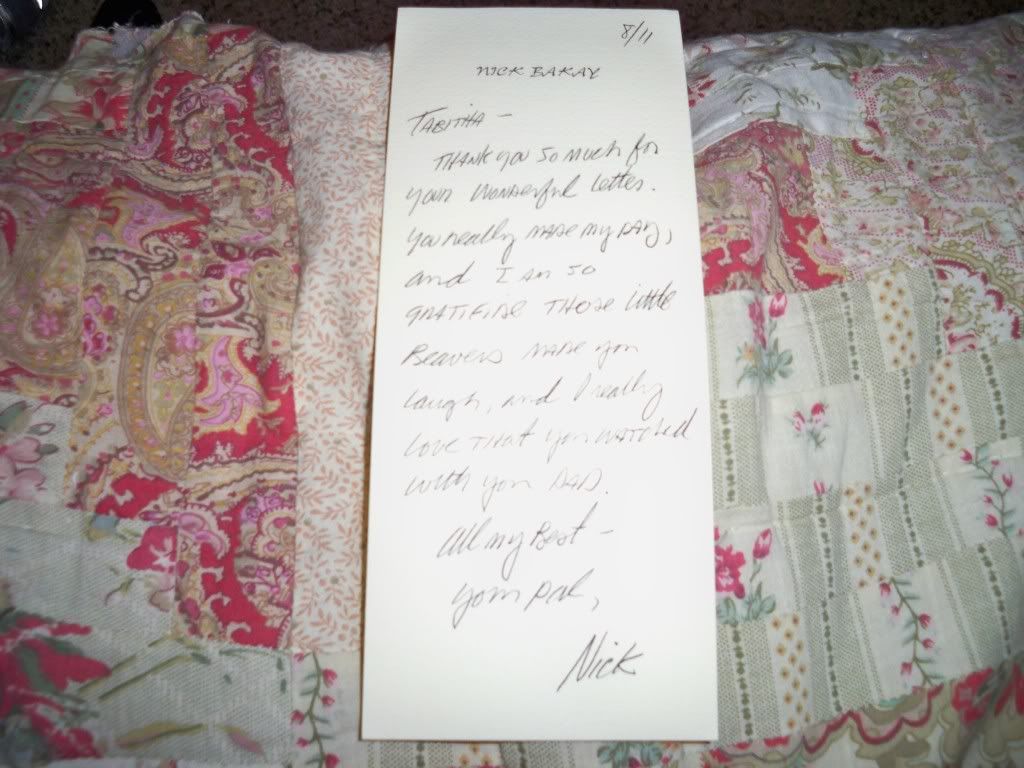 8/11
NICK BAKAY
TABITHA —
THANK YOU SO MUCH for
your wonderful letter.
You really made my day,
and I am so
GRATIFIED THOSE little
Beavers made you
laugh, and I really
love that you watched
with your DAD.
All my Best —
Your pal,
Nick